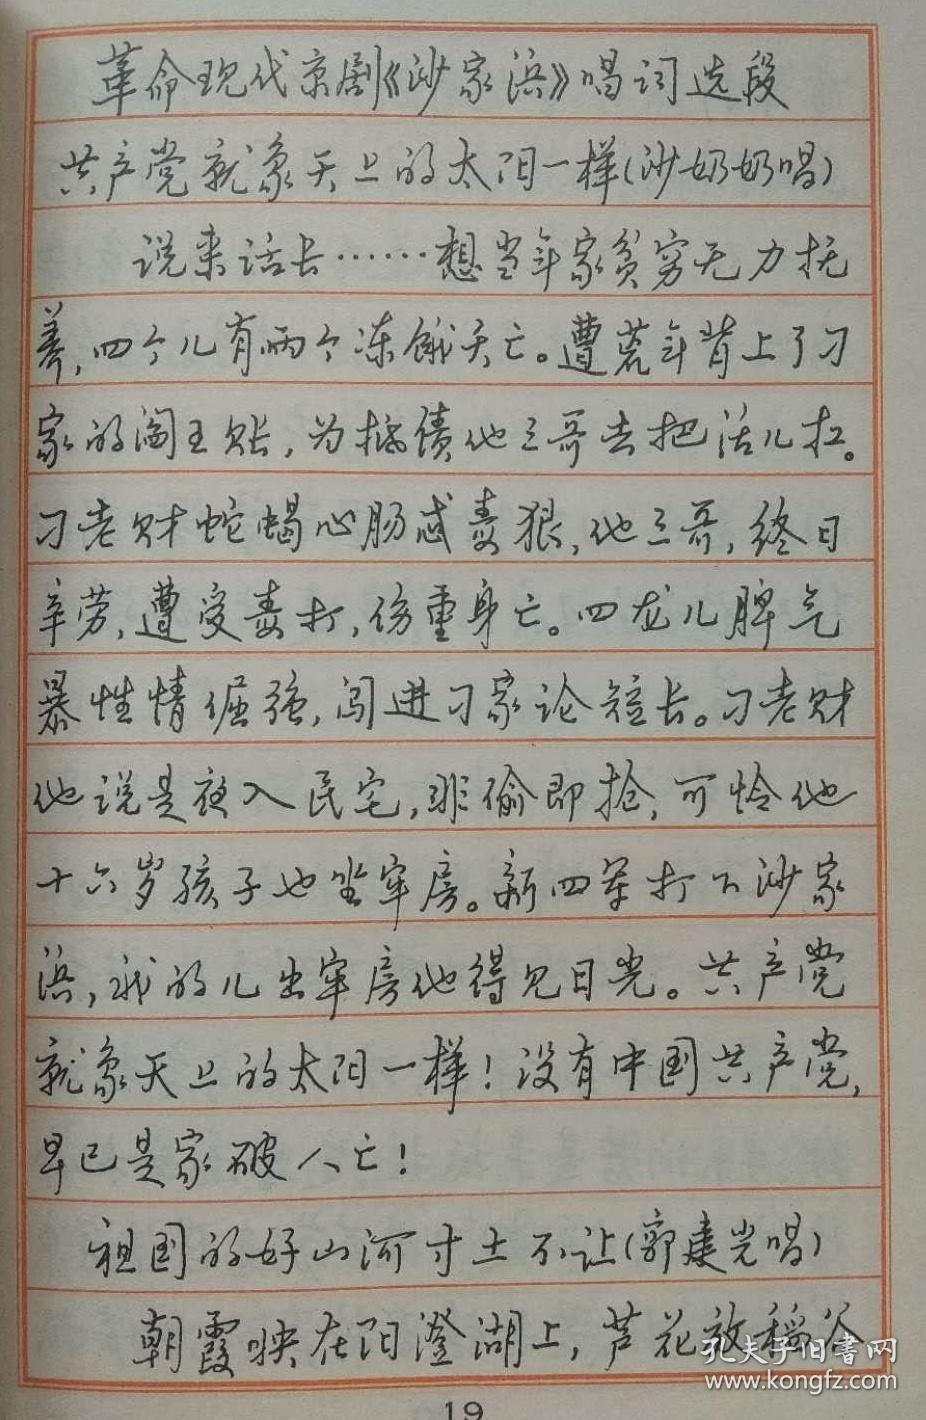 革命现代京剧《沙家浜》唱词选段
共产党就象天上的太阳一样(沙奶奶唱)
说来话长……想当年家贫穷无力抚
养,四个儿有两个冻饿夭亡。遭荒年背上了刁
家的阎王账,为抵债他三哥去把活儿扛。
刁老财蛇蝎心肠忒毒狠,他三哥,终日
辛劳,遭受毒打,伤重身亡。四龙儿脾气
暴性情倔强,闯进刁家论短长。刁老财
他说是夜入民宅,非偷即抢,可怜他
十六岁孩子也坐牢房。新四军打下沙家
浜,我的儿出牢房他得见日光。共产党
就象天上的太阳一样!没有中国共产党,
早已是家破人亡!
祖国的好山河寸土不让(郭建光唱)
朝霞映在阳澄湖上,芦花放稻谷
孔夫子旧书网
www.kongfz.com
19